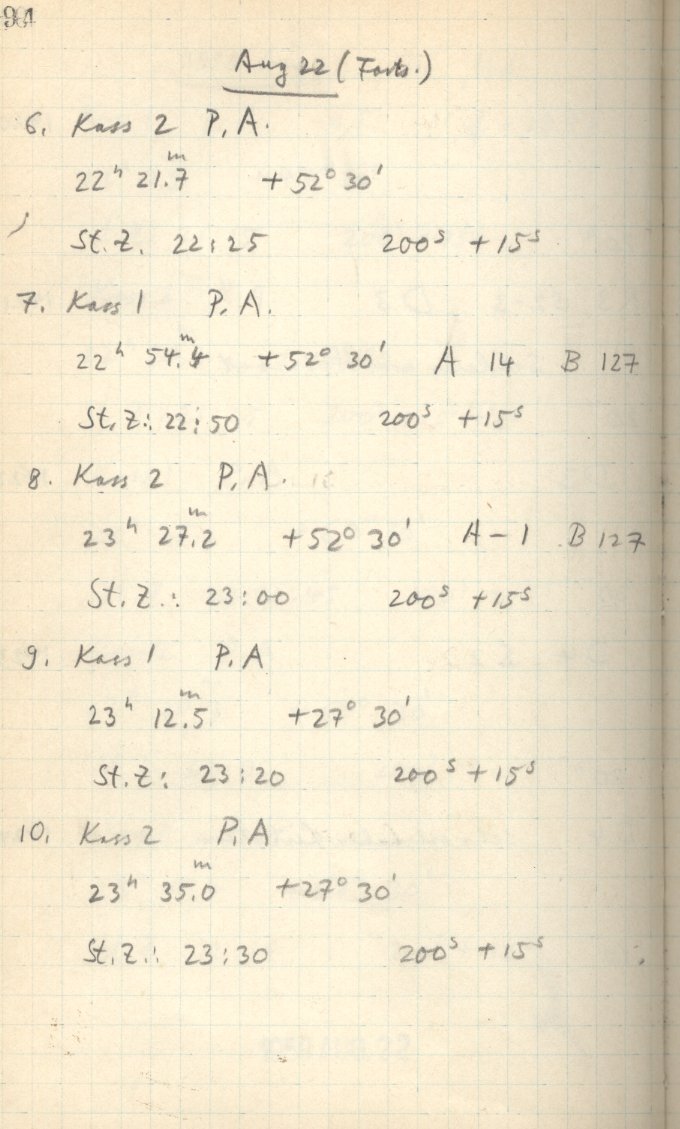 Aug 22 (Forts.)
6. Kass 2 P.A.
22h 21.7m +52° 30'
St.Z. 22:25 200s +15s
7. Kass 1 P.A.
22h 54.4m +52° 30' A 14 B 127
St.Z.: 22:50 200s +15s
8. Kass 2 P.A.
23h 27.2m +52° 30' A -1 B 127
St.Z.: 23:00 200s +15s
9. Kass 1 P.A
23h 12.5m +27° 30'
St.Z: 23:20 200s +15s
10. Kass 2 P.A
23h 35.0m +27° 30'
St.Z.: 23:30 200s +15s